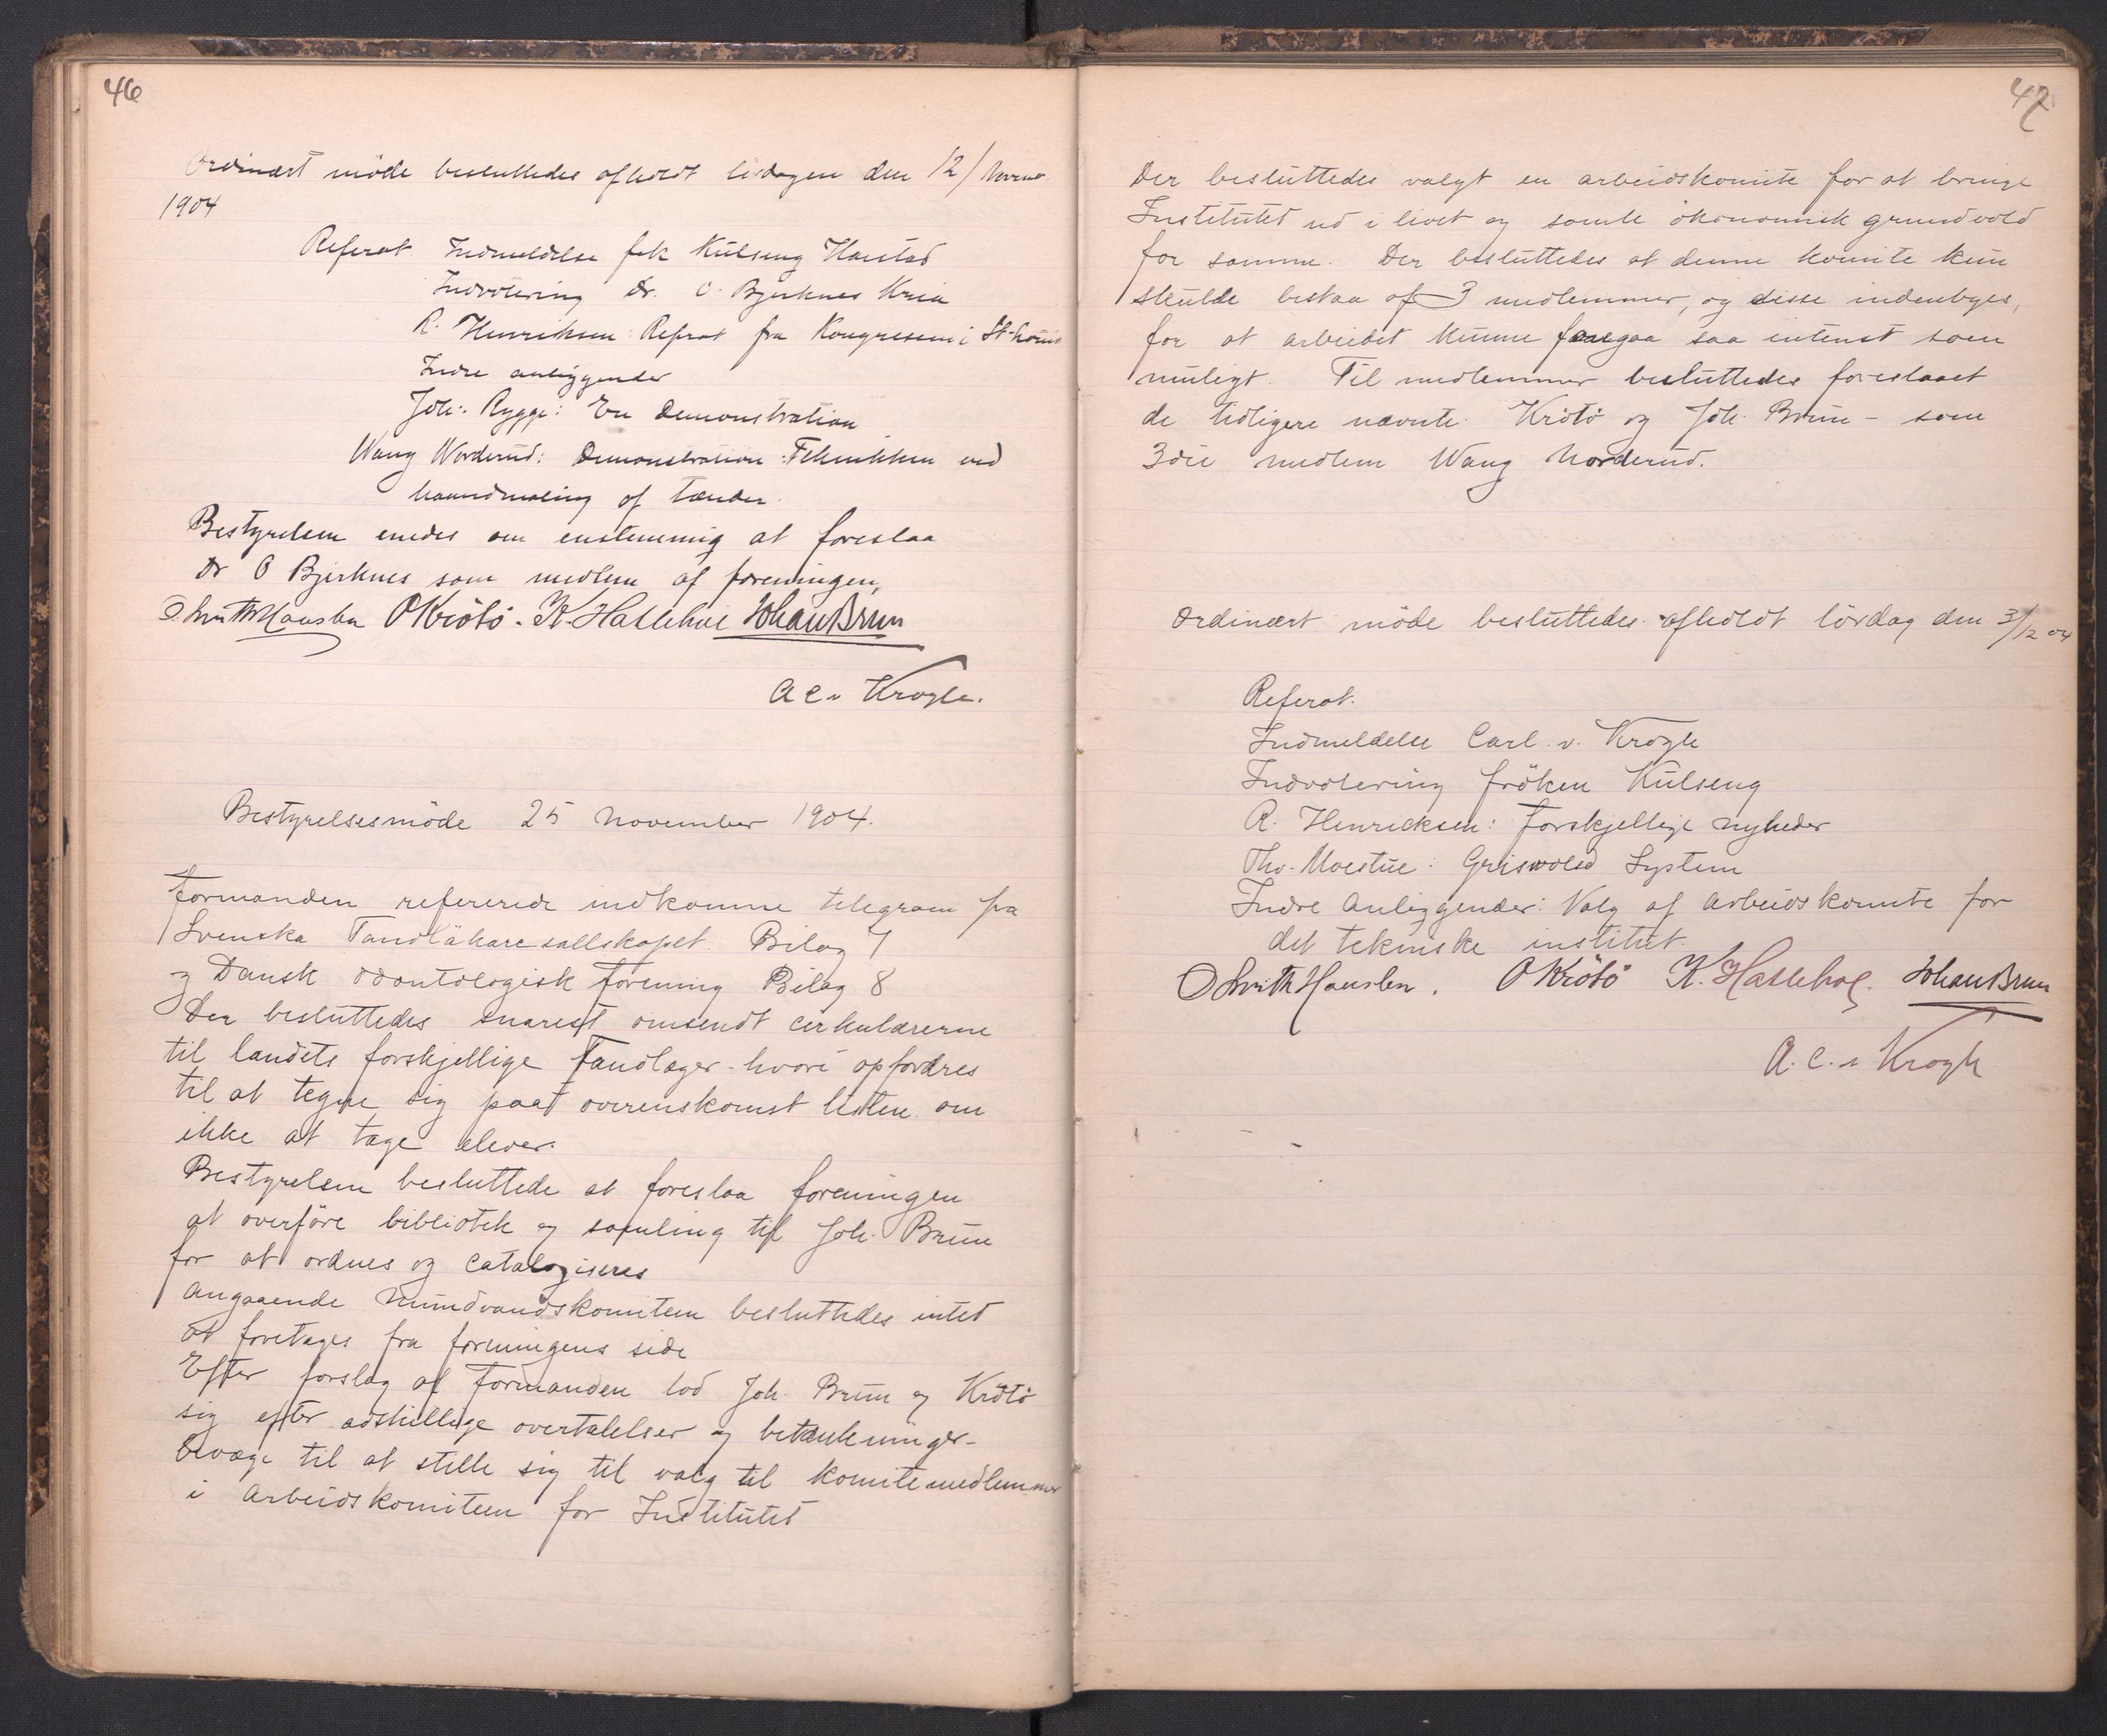 46
Ordinært möde besluttedes afholdt lördagen den 12/ Novemb
1904
Referat Indmeldelse frk Külseng Harstad
Indvotering Dr. O. Bjerknes Kria
R. Henriksen: Referat fra Kongressen i St-Louis
Indre anliggender
Joh: Rygge: En Demonstration
Wang Norderud: Demonstration: Teknikken ved
haandmaling af tænder.
Bestyrelsen enedes om enstemmig at foreslaa
Dr O Bjerknes som medlem af foreningen,
O. Smith Housken O Krötö. K. Haslehol Johan Brun
A C v Krogh.
Bestyrelsesmöde 25 November 1904.
Formanden refererede indkomne telegram fra
Svenska Tandläkaresallskapet. Bilag 7
og Dansk odontologisk forening Bilag 8
Der besluttedes snarest omsendt cirkulærerne
til landets forskjellige Tandlæger - hvori opfordres
til at tegne sig paa overenskomst listen om
ikke at tage elever.
Bestyrelsen besluttede at foreslaa foreningen
at overföre bibliotek og samling til Joh. Brün
for at ordnes og catalogiseres
Angaaende Mundvandskomiteen besluttedes intet
at foretages fra foreningens side
Efter forslag af Formanden lod Joh. Brün og Krötö
sig efter adskillige overtalelser og betænkninger-
bevæge til at stille sig til valg til komitemedlemmer
i Arbeidskomiteen for Institütet
47
Der beslüttedes valgt en arbeidskomite for at bringe
Institütet ud i livet og samle ökonomisk grundvold
for samme. Der beslüttedes at denne komite kün
skülde bestaa af 3 medlemmer, og disse indenbyes,
for at arbeidet künne foregaa saa intenst som
müligt. Til medlemmer beslüttedes foreslaaet
de tidligere nævnte Krötö og Joh. Brün - som
3die medlem Wang Norderüd.
Ordinært möde beslüttedes afholdt lördag den 3/12 04
Referat.
Indmeldelse Carl. v. Krogh
Indvotering fröken Külseng
R. Henricksen: forskjellige nyheder
Th. Moestüe: Griswolsd System
Indre Anliggender: Valg af Arbeidskomite for
det tekniske institüt.
O Smith Housken. O Krötö K. Haslehol. Johan Brun
A. C. v Krogh